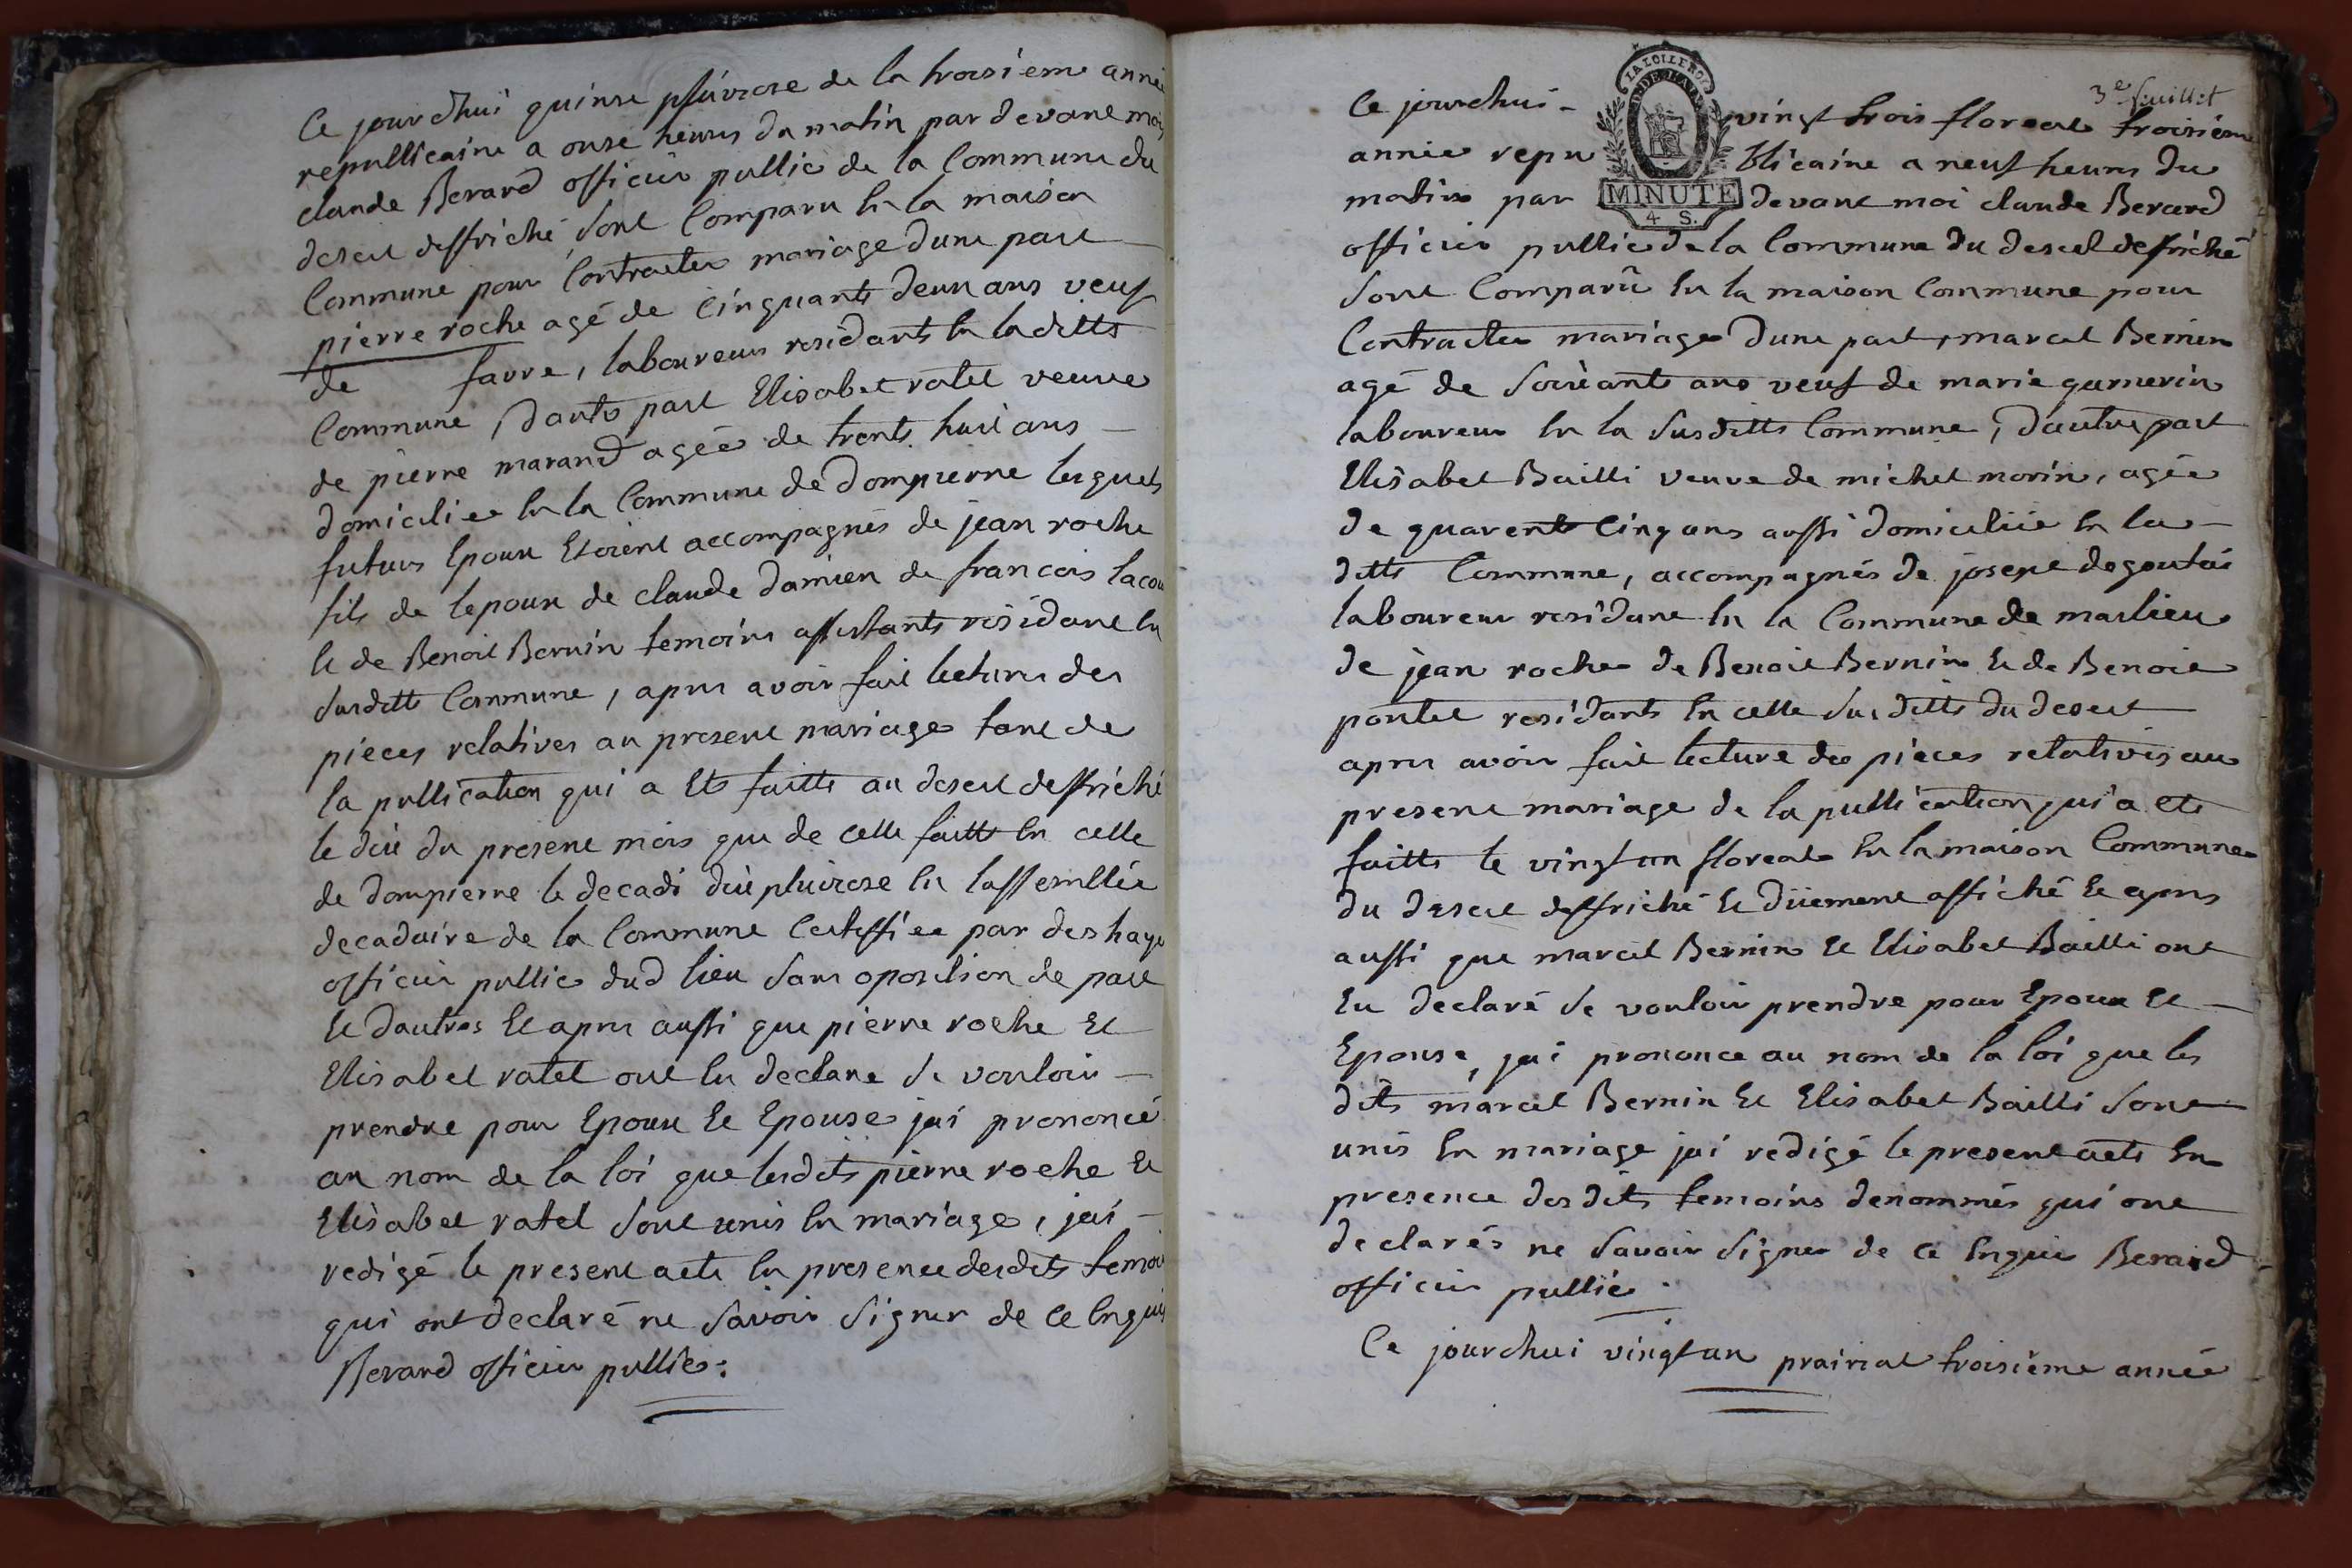 Ce jourdhui quinse pluviose de la troisieme année
republicaine a onse heures du matin par devant moi
claude Berard officier public de la Commune du
desert deffriché sont Comparu en la maison
Commune pour Contracter mariage dune part
pierre roche agé de Cinquante deux ans veuf
de favre, laboureur residants en la ditte
Commune, dautre part Elisabet ratel veuve
de pierre marand agée de trente huit ans
domiciliee en la Commune de dompierre lesquels
futurs Epoux Etoient accompagnés de jean roche
fils de lepoux de claude damien de francois lacou
et de Benoit Bernin temoins assistants residant en
susditte Commune, apres avoir fait lecture des
pieces relatives au present mariage tant de
la publication qui a ete faitte au desert deffriché
le dix du present mois que de celle faitte en celle
de dompierre le decadi dix pluviose en lassemblée
decadaire de la Commune Certiffiee par deshaye
officier public dud lieu sans oposition de part
et dautres et apres aussi que pierre roche et
Elisabet ratel ont eu declare se vouloir
prendre pour Epoux et Epouse jai prononcé
au nom de la loi que lesdits pierre roche et
Elisabet ratel sont unis en mariage, jai
redigé le present acte en presence desdits temoi
qui ont declaré ne savoir signer de ce Enquis
Berard officier public.
3e feuillet
Ce jourdhui vingt trois floreal troisieme
LA LOI LE ROI
MINUTE
4 S.
année republicaine a neuf heures du
matin par devant moi claude Berard
officier public de la Commune du desert defriché
sont Comparû en la maison Commune pour
Contracter mariage dune part, marcel Bernin
agé de soixante ans veuf de marie gumerin
laboureur en la susditte Commune, dautre part
Elisabet Bailli veuve de michel morin, agée
de quarente Cinq ans aussi domiciliée en la
ditte Commune, accompagnés de josept degoutai
laboureur residant en la Commune de marlieu
de jean roche de Benoit Bernin et de Benoit
pontet residants en celle susditte du desert
apres avoir fait lecture des pieces relatives au
present mariage de la publication qui a ete
faitte le vingt un floreal en la maison Commune
du desert deffriché et düement affiché et apres
aussi que marcel Bernin et Elisabet Bailli ont
Eu declaré se vouloir prendre pour Epoux et
Epouse, jai prononce au nom de la loi que les
dits marcel Bernin et Elisabet Bailli sont
unis en mariage jai redigé le present acte en
presence des dits temoins denommés qui ont
declarés ne savoir signer de ce Enquis Berard
officier public.
Ce jourdhui vingt un prairial troisieme année